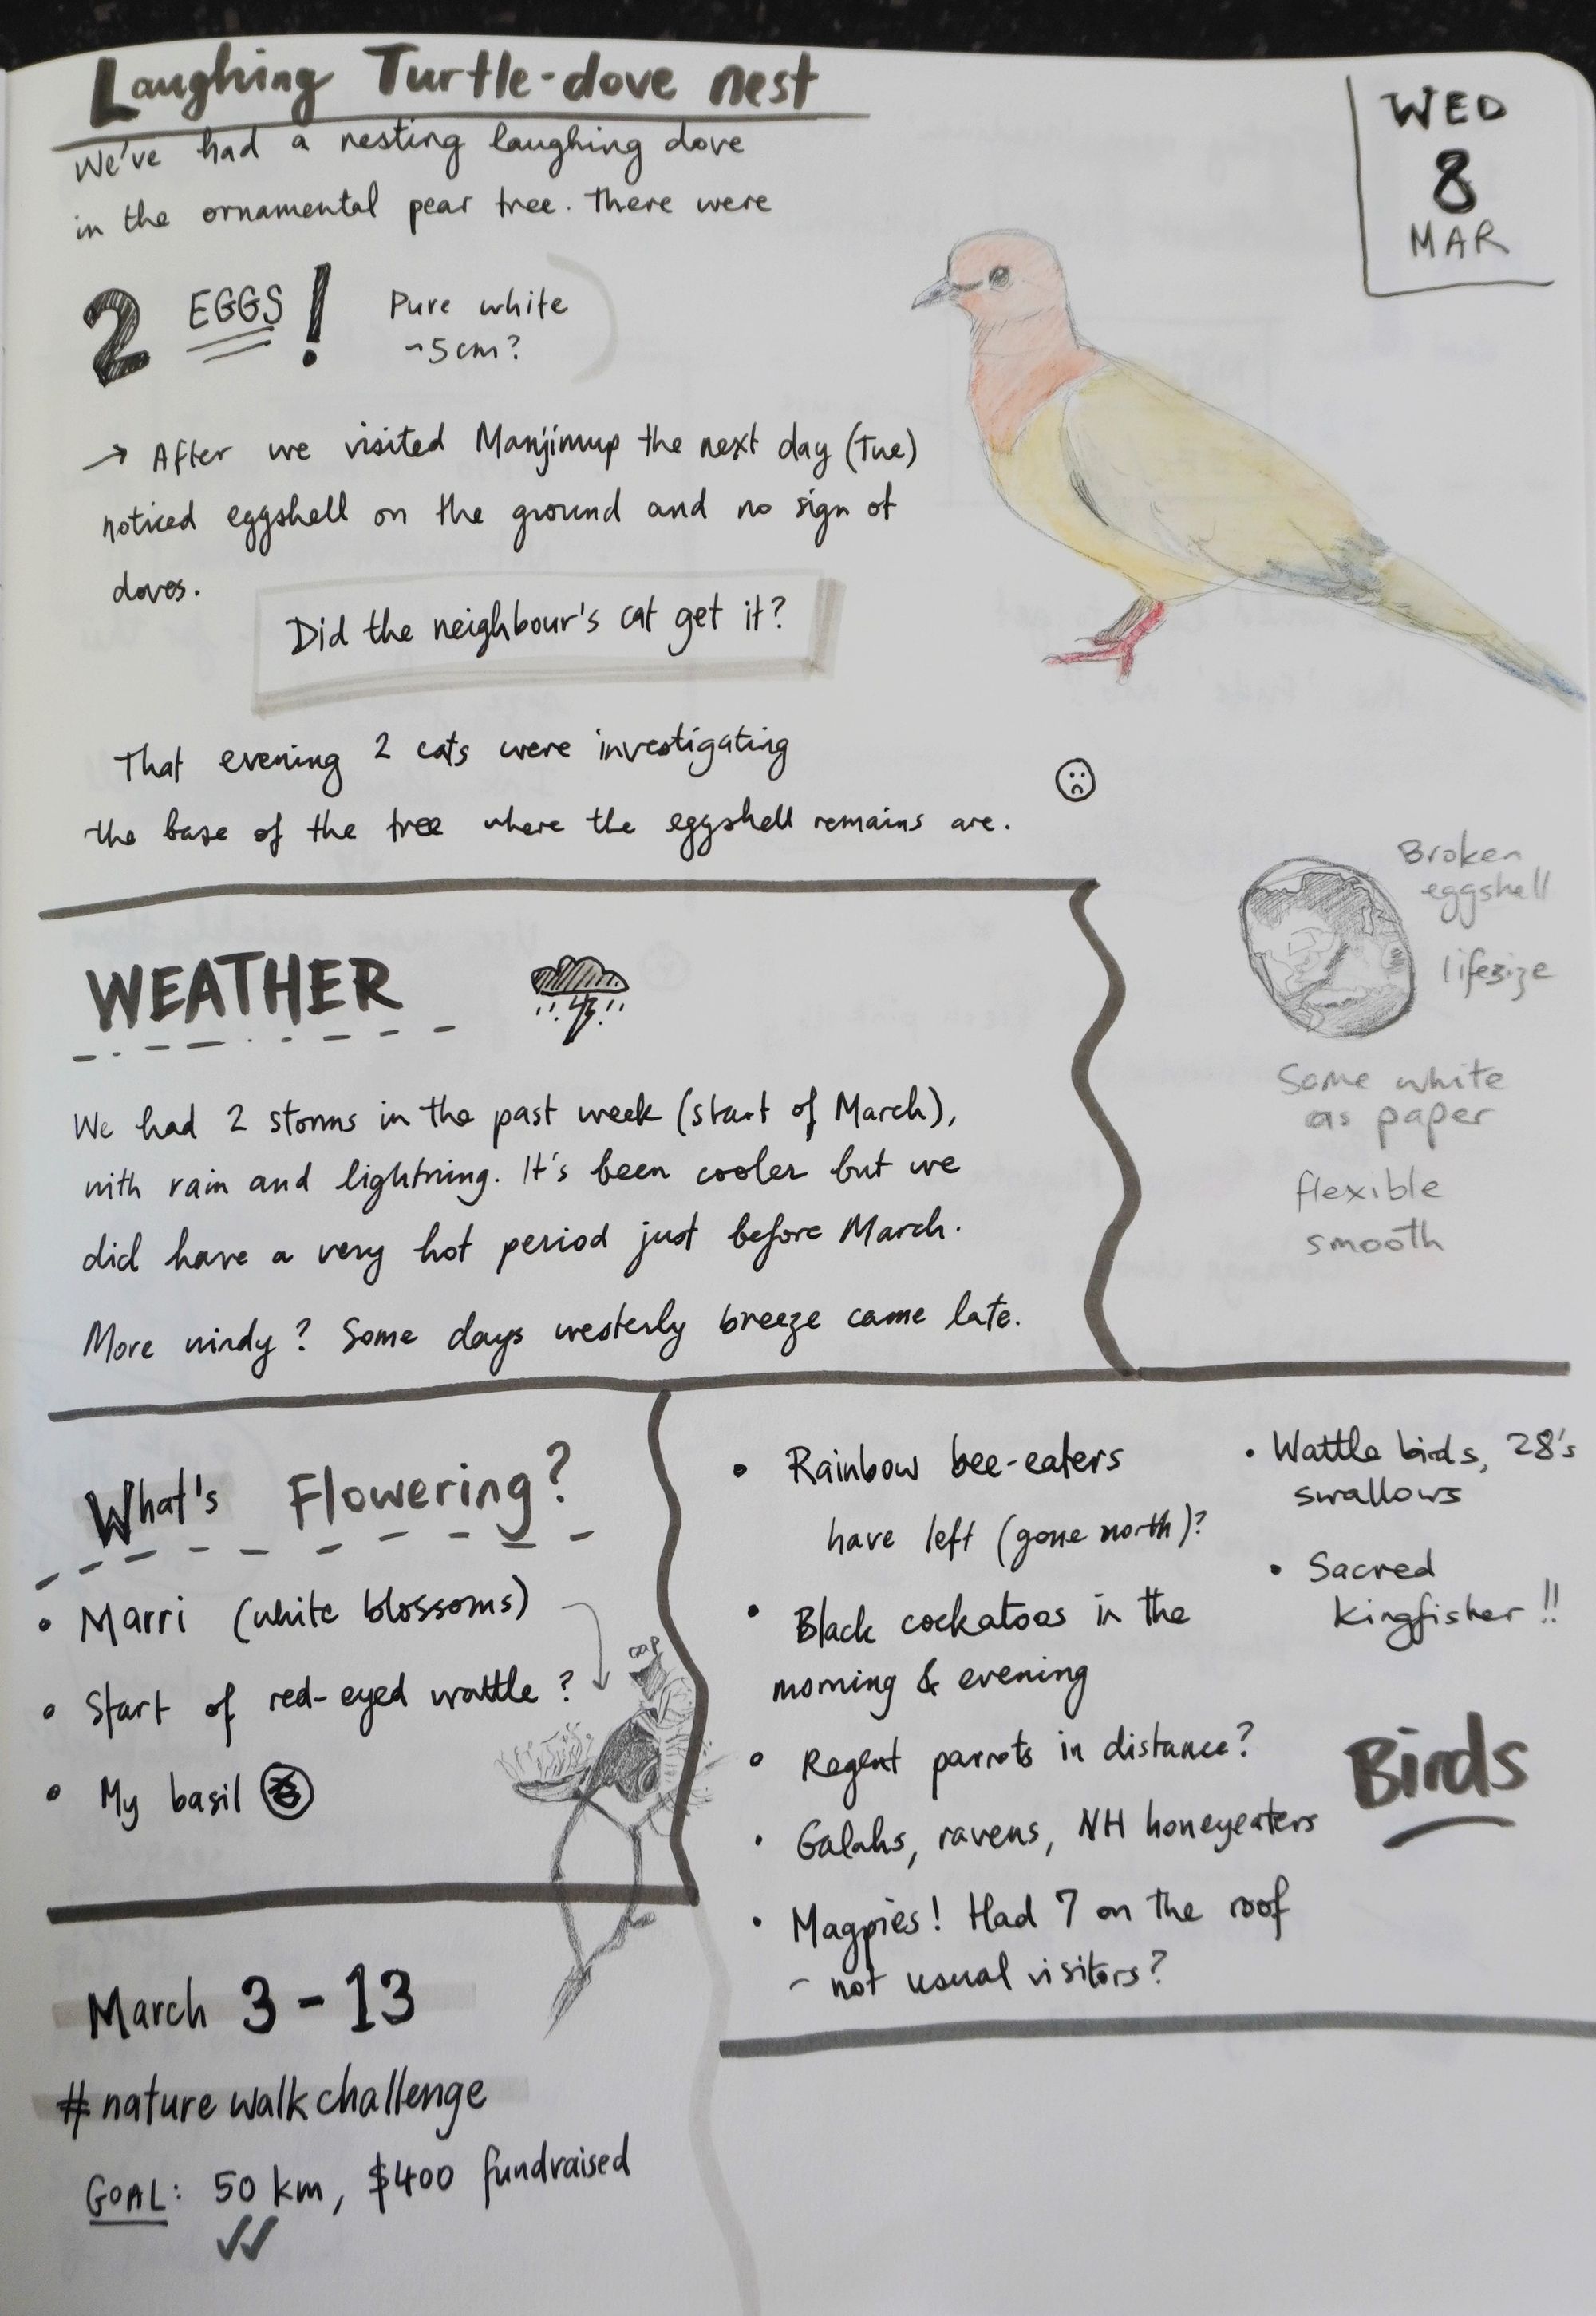 Laughing Turtle-dove nest
WED
8
MAR
We've had a nesting laughing dove
in the ornamental pear tree. There were
2 EGGS!
Pure white
~5cm?
→ After we visited Manjimup the next day (Tue)
noticed eggshell on the ground and no sign of
doves.
Did the neighbour's cat get it?
That evening 2 cats were investigating
the base of the tree where the eggshell remains are.
Broken
eggshell
lifesize
Same white
as paper
flexible
smooth
WEATHER
We had 2 storms in the past week (start of March),
with rain and lightning. It's been cooler but we
did have a very hot period just before March.
More windy? Some days westerly breeze came late.
What's Flowering?
• Marri (white blossoms)
cap
• Start of red-eyed wattle?
• My basil
• Rainbow bee-eaters
have left (gone north)?
• Black cockatoos in the
morning & evening
• Regent parrots in distance?
• Galahs, ravens, NH honeyeaters
• Magpies! Had 7 on the roof
~ not usual visitors?
• Wattle birds, 28's
swallows
• Sacred
kingfisher!!
Birds
March 3-13
#naturewalkchallenge
GOAL: 50 km, $400 fundraised